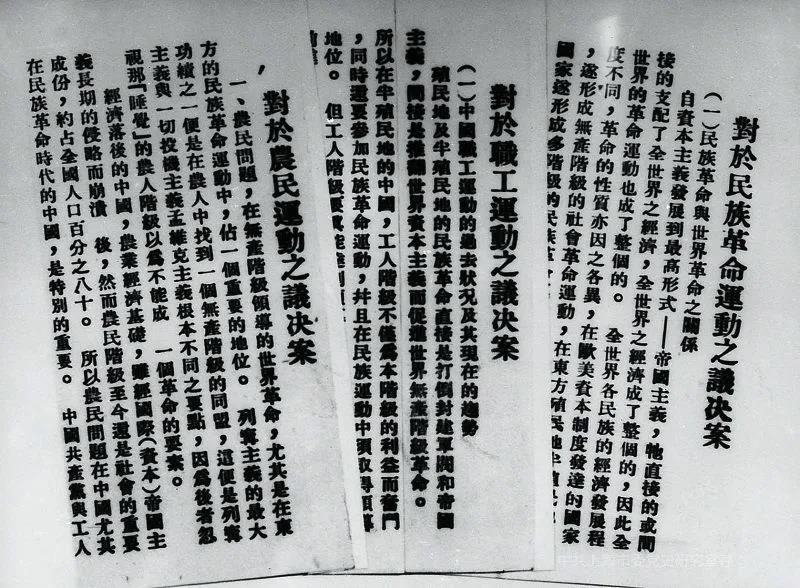 對於民族革命運動之議决案
(一)民族革命與世界革命之關係
自資本主義發展到最高形式——帝國主義,牠直接的或間
接的支配了全世界之經濟,全世界之經濟成了整個的,因此全
世界的革命運動也成了整個的。 全世界各民族的經濟發展程
度不同,革命的性質亦因之各異,在歐美資本制度發達的國家
,遂形成無產階級的社會革命運動,在東方殖民地半殖民地
國家遂形成多階級的民族革
對於職工運動之議决案
(一)中國職工運動的過去狀况及其現在的趨勢
殖民地及半殖民地的民族革命直接是打倒封建軍閥和帝國
主義,間接是推翻世界資本主義而促進世界無產階級革命。
所以在半殖民地的中國,工人階級不僅爲本階級的利益而奮鬥
,同時還要參加民族革命運動,幷且在民族運動中須取得領導
地位。 但工人階級要
對於農民運動之議决案
一、農民問題,在無產階級領導的世界革命,尤其是在東
方的民族革命運動中,佔一個重要的地位。 列寗主義的最大
功績之一便是在農人中找到一個無產階級的同盟,這便是列寗
主義與一切投機主義孟維克主義根本不同之要點,因爲後者忽
視那『睡覺』的農人階級以爲不能成 一個革命的要素。
經濟落後的中國,農業經濟基礎,雖經國際(資本)帝國主
義長期的侵略而崩潰 後,然而農民階級至今還是社會的重要
成份,約占全國人口百分之八十。 所以農民問題在中國尤其
在民族革命時代的中國,是特別的重要。 中國共產黨與工人